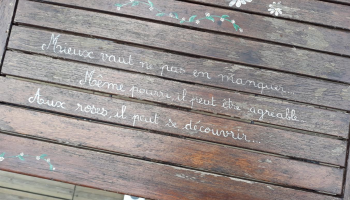 Mieux vaut ne pas en manquer...
Même pourri, il peut être agréable.
Aux roses, il peut se découvrir...